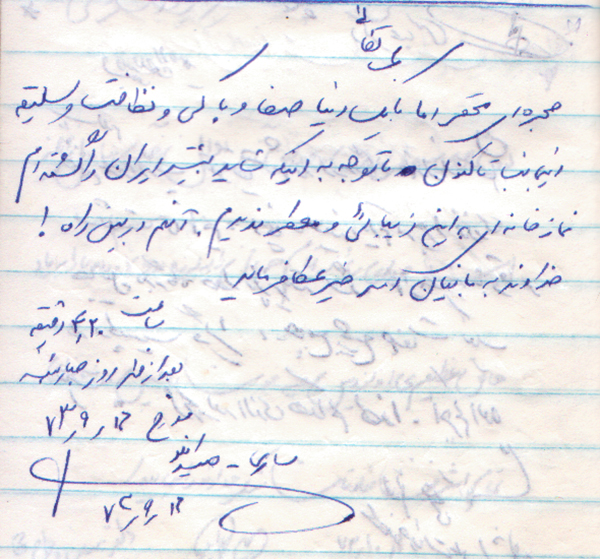 بسمه تعالی
حجره ای محقر اما با یک دنیا صفا و پاکی و نظافت و سلیقه
اینجانب تاکنون با توجه به اینکه شاید بیشتر ایران را گشته ام
نمازخانه ای به این زیبائی و معطر ندیدم. آنهم در بین راه!
خداوند به بانیان امر خیر عطا فرماید
ساعت ۴,۲۰ دقیقه
بعد از ظهر روز چهارشنبه
مورخ ۱۲ر۹ر۷۳
۱۲ر۹ر۷۳